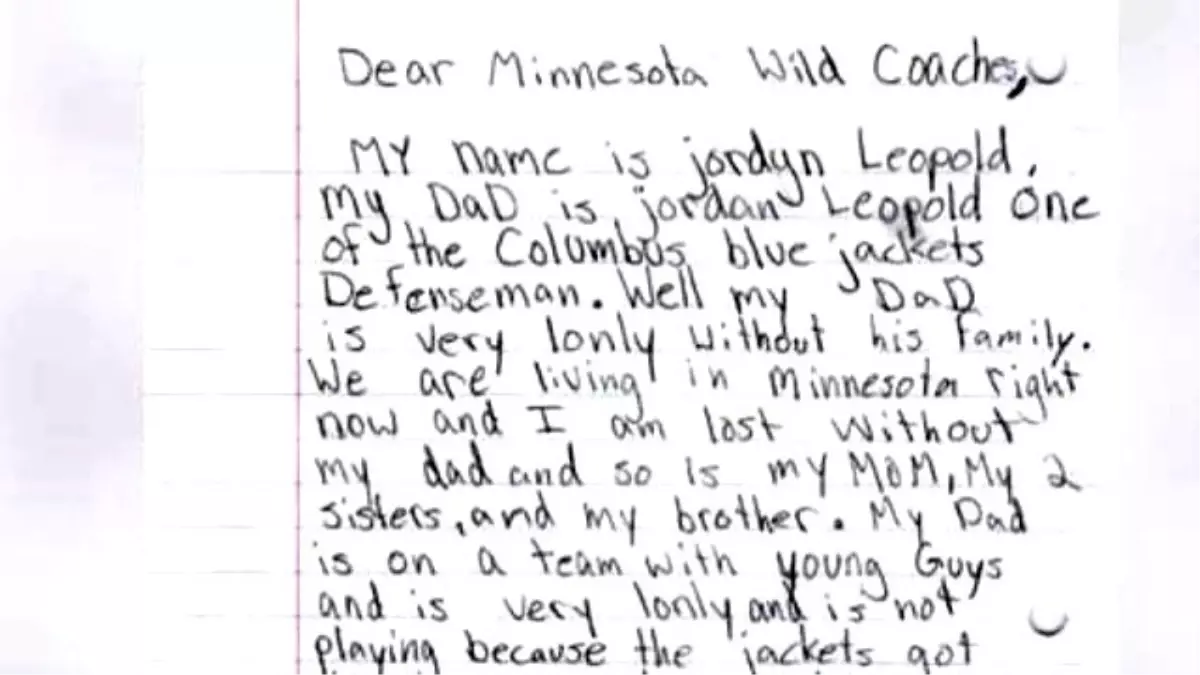 Dear Minnesota Wild Coaches,
MY name is jordyn Leopold.
my DaD is jordan Leopold One
of the Columbus blue jackets
Defenseman. Well my DaD
is very lonly without his family.
We are living in Minnesota right
now and I am lost without
my dad and so is my MOM, My 2
sisters, and my brother. My Dad
is on a team with young Guys
and is very lonly and is not
playing because the jackets got